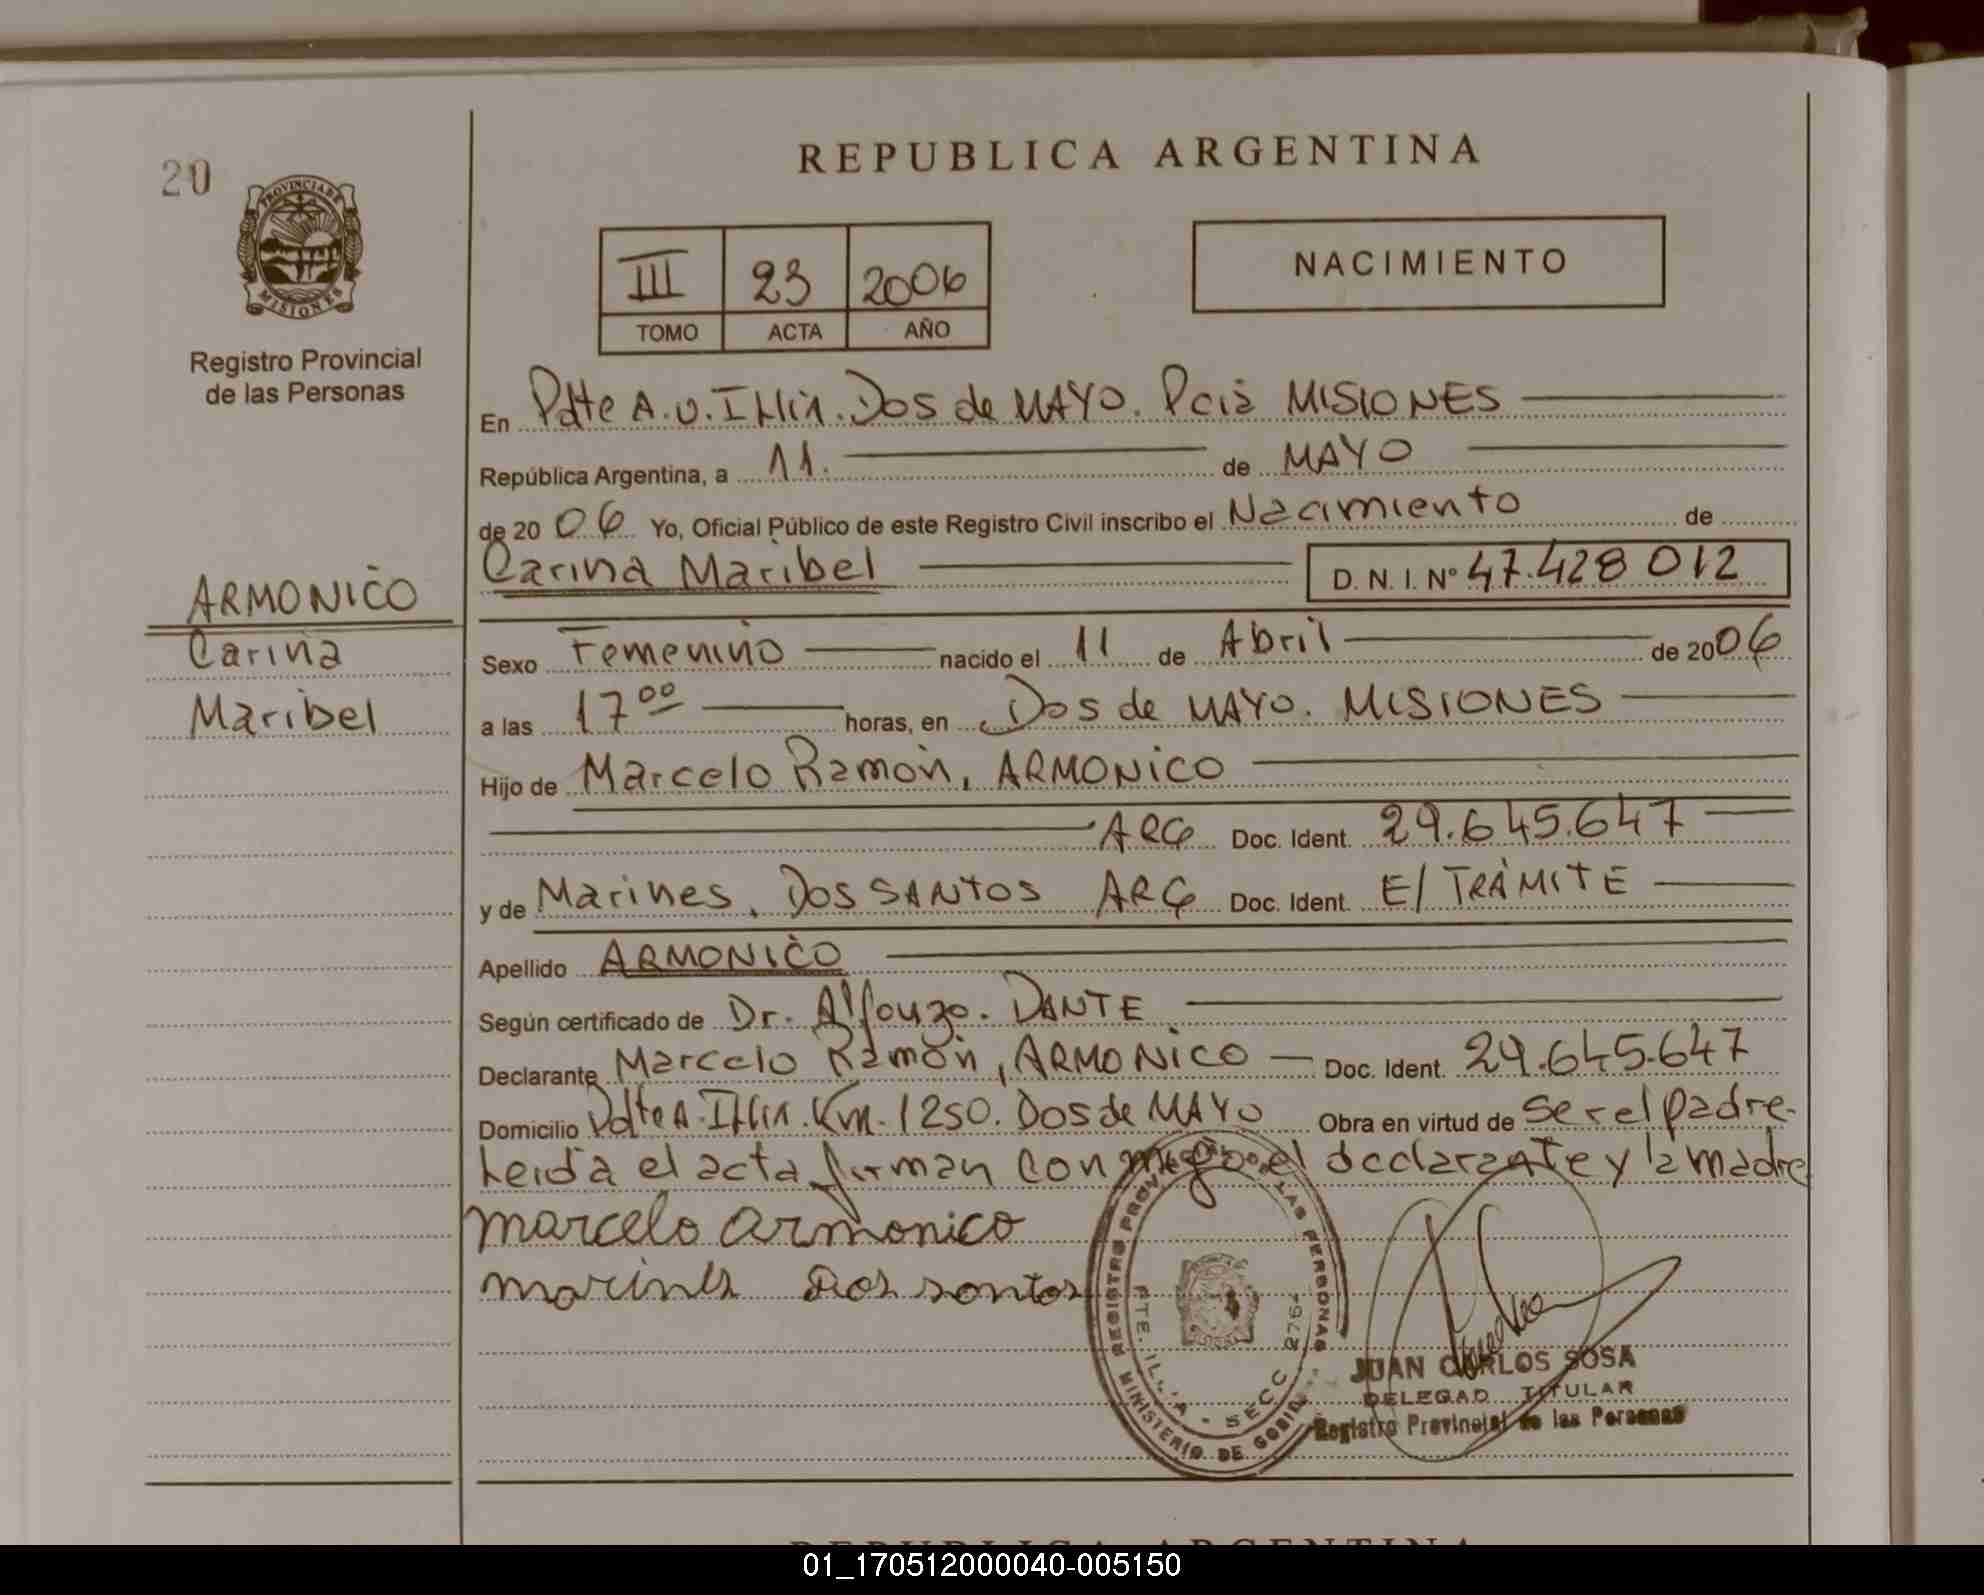 20
PROVINCIA DE
MISIONES
Registro Provincial
de las Personas
ARMONICO
Carina
Maribel
REPUBLICA ARGENTINA
III 23 2006
TOMO ACTA AÑO
NACIMIENTO
En Pdte A. U. Illia. Dos de MAYO. Pcia MISIONES
República Argentina, a 11. de MAYO
de 2006 Yo, Oficial Público de este Registro Civil inscribo el Nacimiento de
Carina Maribel D. N. I. Nº 47.428 012
Sexo Femenino nacido el 11 de Abril de 2006
a las 17 00 horas, en Dos de MAYO. MISIONES
Hijo de Marcelo Ramón, ARMONICO
ARG Doc. Ident. 29.645.647
y de Marines, DOS SANTOS ARG Doc. Ident. E/ TRÁMITE
Apellido ARMONICO
Según certificado de Dr. Alfonzo. DANTE
Declarante Marcelo Ramón, ARMONICO Doc. Ident. 29.645.647
Domicilio Pdte A. Illia. Km. 1250. Dos de MAYO Obra en virtud de ser el padre.
Leida el acta firman conmigo el declarante y la madre
marcelo armonico
marines Dos santos
REGISTRO PROV. LAS PERSONAS
MINISTERIO DE GOBI
SECC 2767
JUAN CARLOS SOSA
DELEGAD TITULAR
Registro Provincial de las Personas
REPUBLICA ARGENTINA
01_170512000040-005150